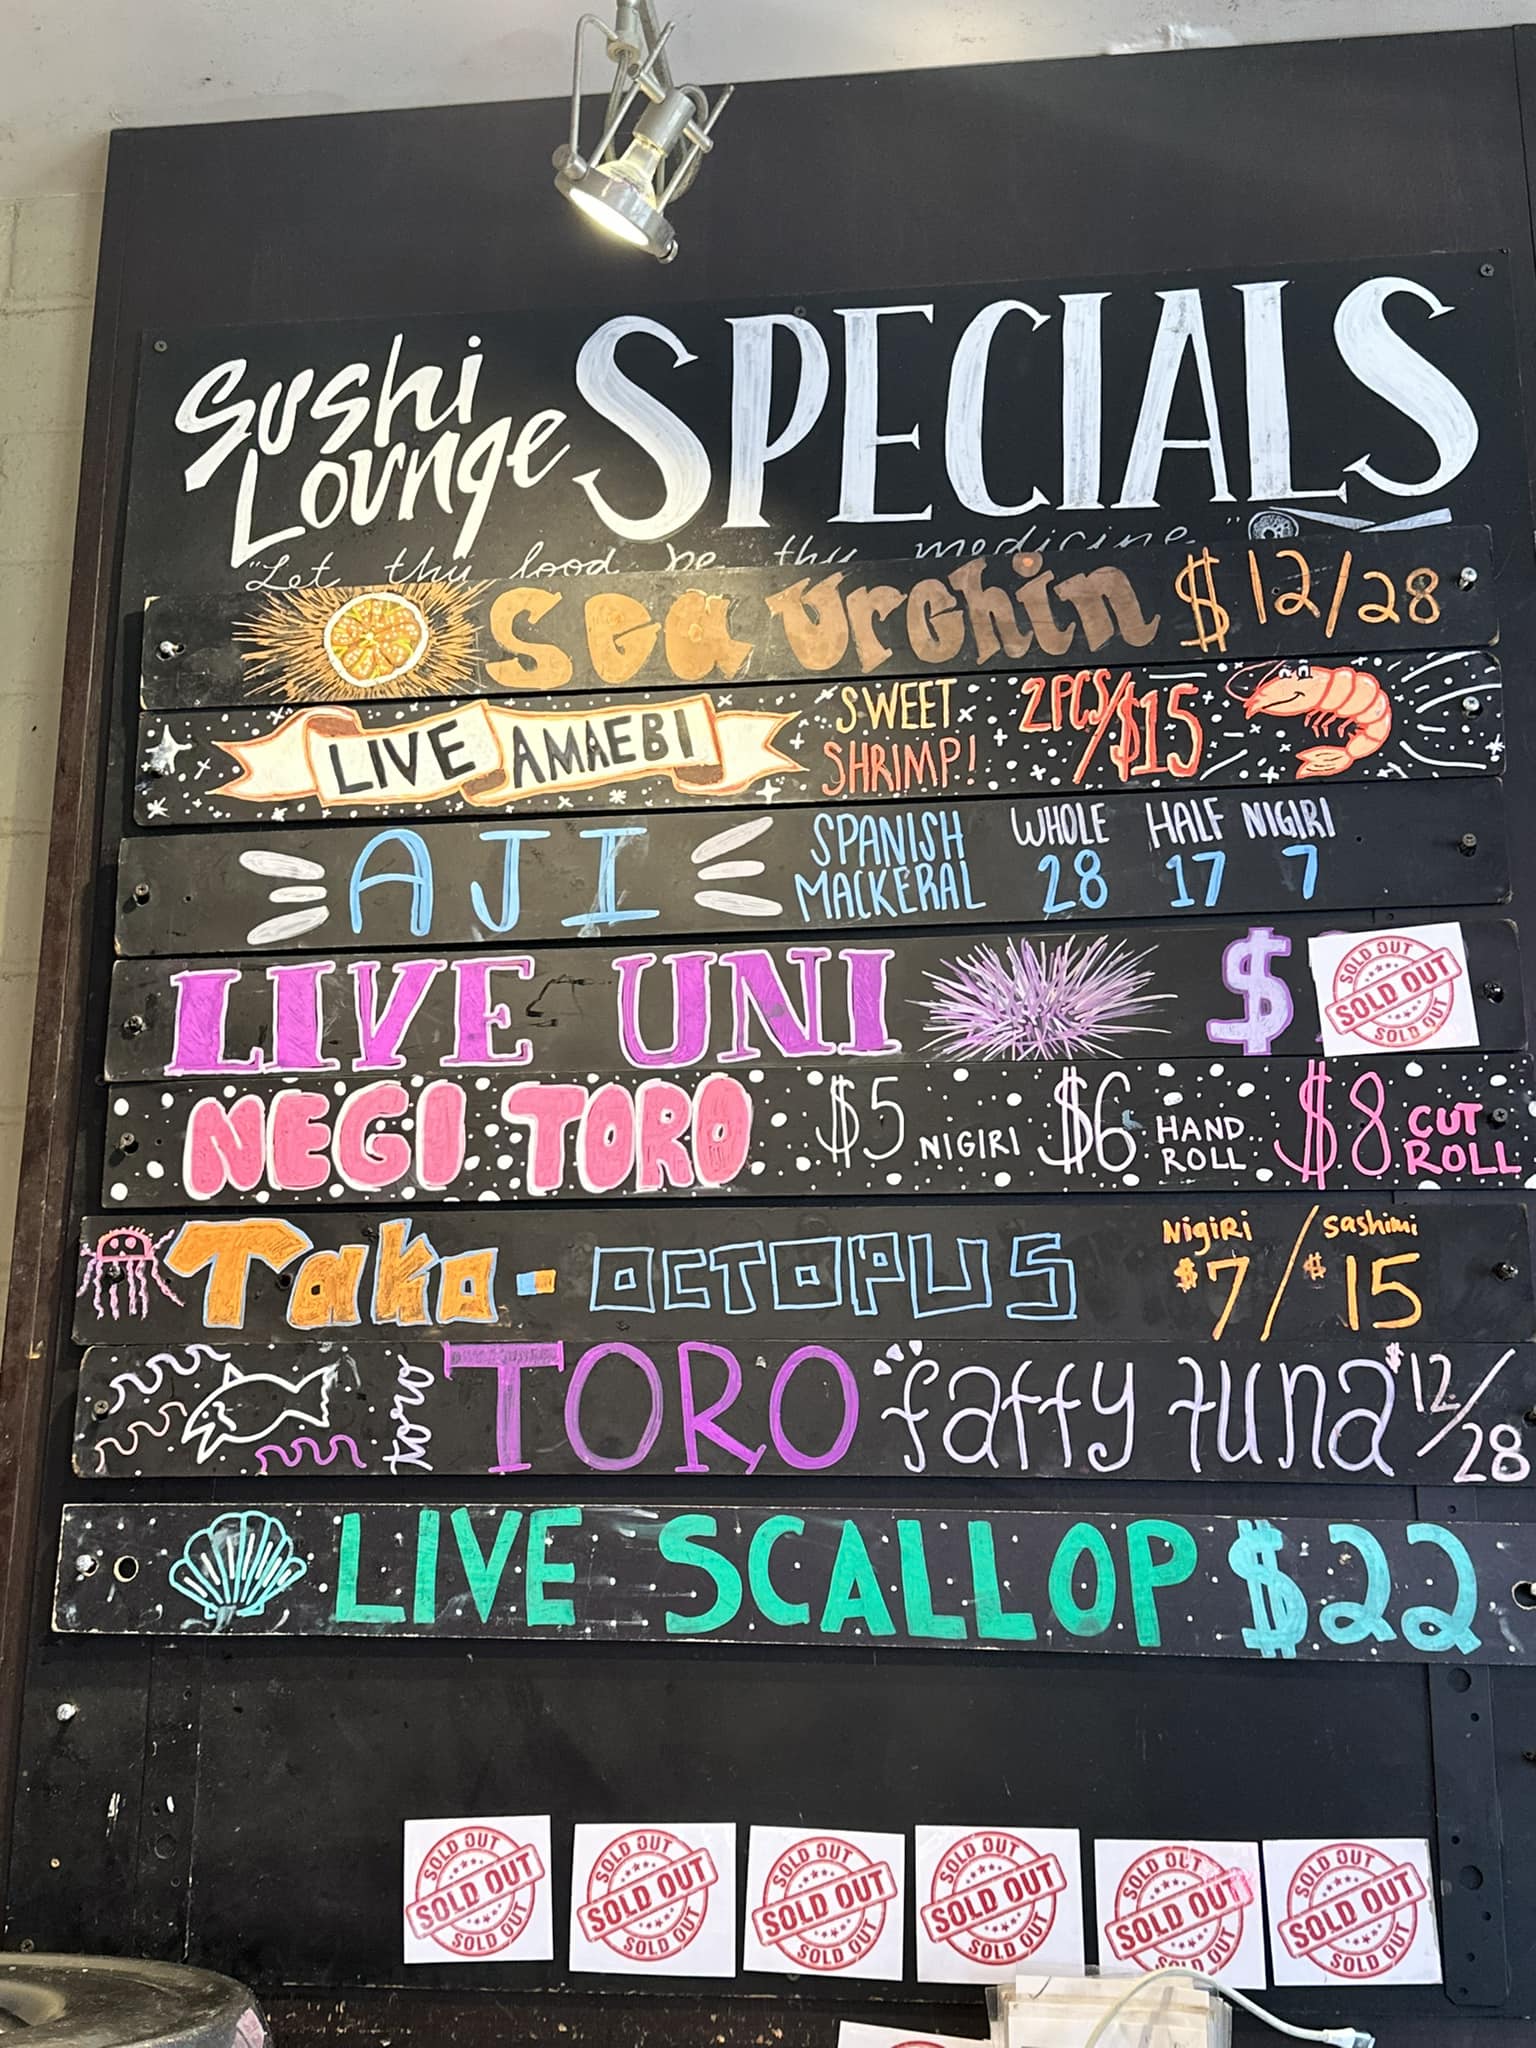 Sushi
Lounge
SPECIALS
"Let thy food be thy medicine"
Sea Urchin $12/28
LIVE AMAEBI SWEET SHRIMP! 2PCS/$15
AJI SPANISH MACKERAL WHOLE 28 HALF 17 NIGIRI 7
LIVE UNI $ SOLD OUT SOLD OUT SOLD OUT
NEGI TORO $5 NIGIRI $6 HAND ROLL $8 CUT ROLL
Tako - OCTOPUS Nigiri $7 / Sashimi $15
toro TORO fatty tuna $12/28
LIVE SCALLOP $22
SOLD OUT SOLD OUT SOLD OUT
SOLD OUT SOLD OUT SOLD OUT
SOLD OUT SOLD OUT SOLD OUT
SOLD OUT SOLD OUT SOLD OUT
SOLD OUT SOLD OUT SOLD OUT
SOLD OUT SOLD OUT SOLD OUT